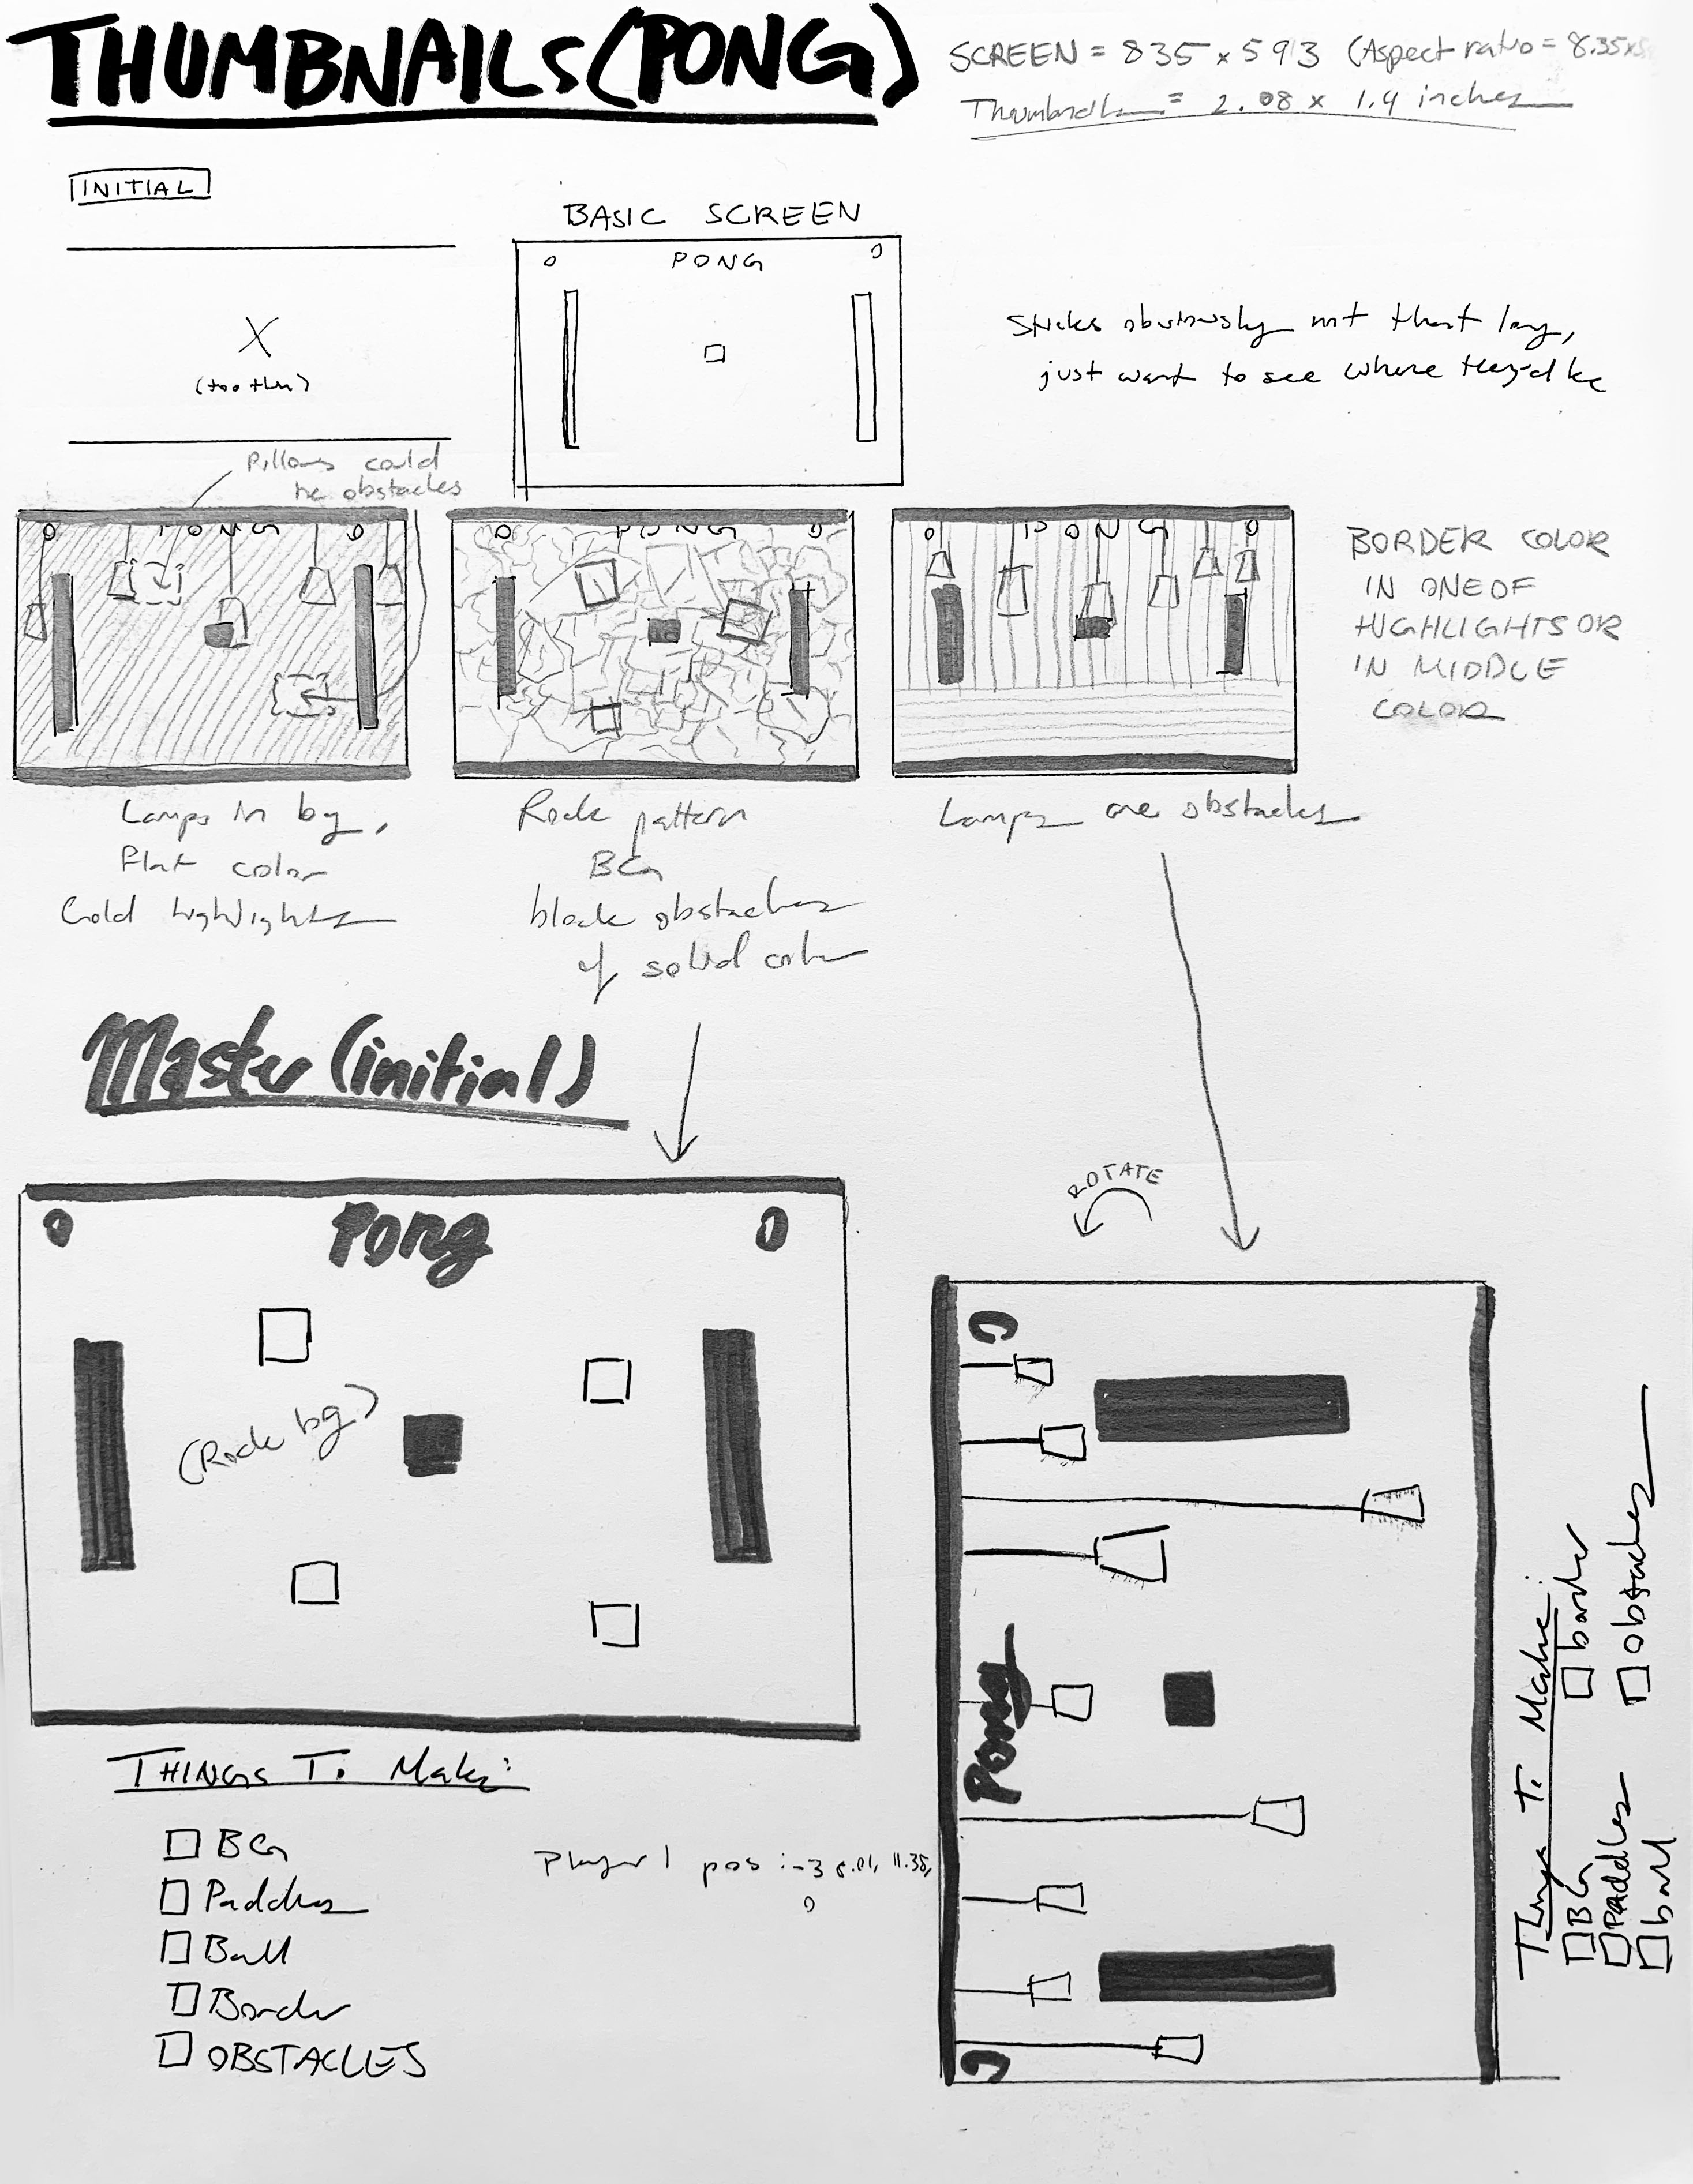 THUMBNAILS (PONG)
SCREEN = 835 x 593 (Aspect ratio = 8.35x5
Thumbnails = 2.08 x 1.4 inches
INITIAL
BASIC SCREEN
0 PONG 0
X
(too thin)
Sticks obviously not that long,
just want to see where they'd be
Pillows could
be obstacles
0 PONG 0
0 PONG 0
0 PONG 0
BORDER COLOR
IN ONE OF
HIGHLIGHTS OR
IN MIDDLE
COLOR
Lamps in bg,
flat color
Gold highlights
Rock pattern
BG
block obstacles
of solid color
Lamps are obstacles
Master (initial)
ROTATE
0 Pong 0
(Rock bg)
0
Pong
0
THINGS To Make:
BG
Paddles
Ball
Border
OBSTACLES
Player 1 pos :-3 8.01, 11.38,
0
Things To Make:
BG
Paddles
ball
border
obstacles